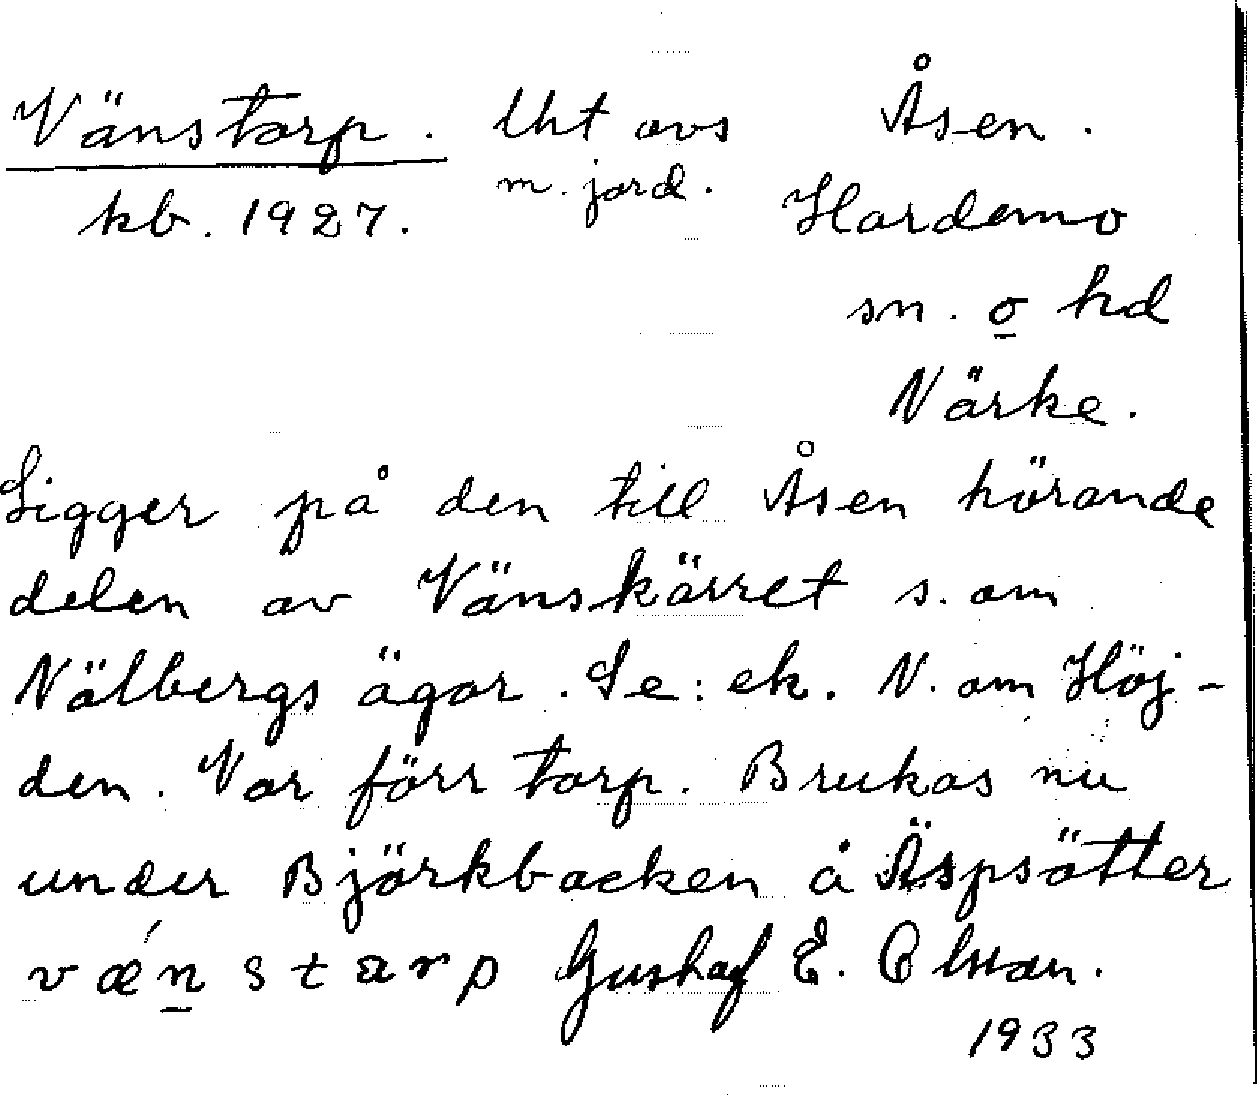 Vänstorp. Uht avs Åsen.
kb. 1927. m. jord. Hardemo
sn. o hd
Närke.
Ligger på den till Åsen hörande
delen av Vänskärret s. om
Nälbergs ägor. Se: ek. N. om Höj-
den. Var förr torp. Brukas nu
under Björkbacken å Äspsätter
vǽn̲starp Gustaf E. Olsson.
1933